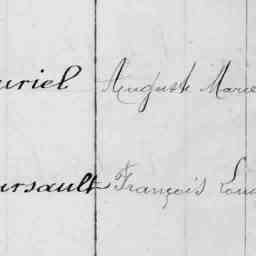 uriel Auguste Marie
ursault François Lou